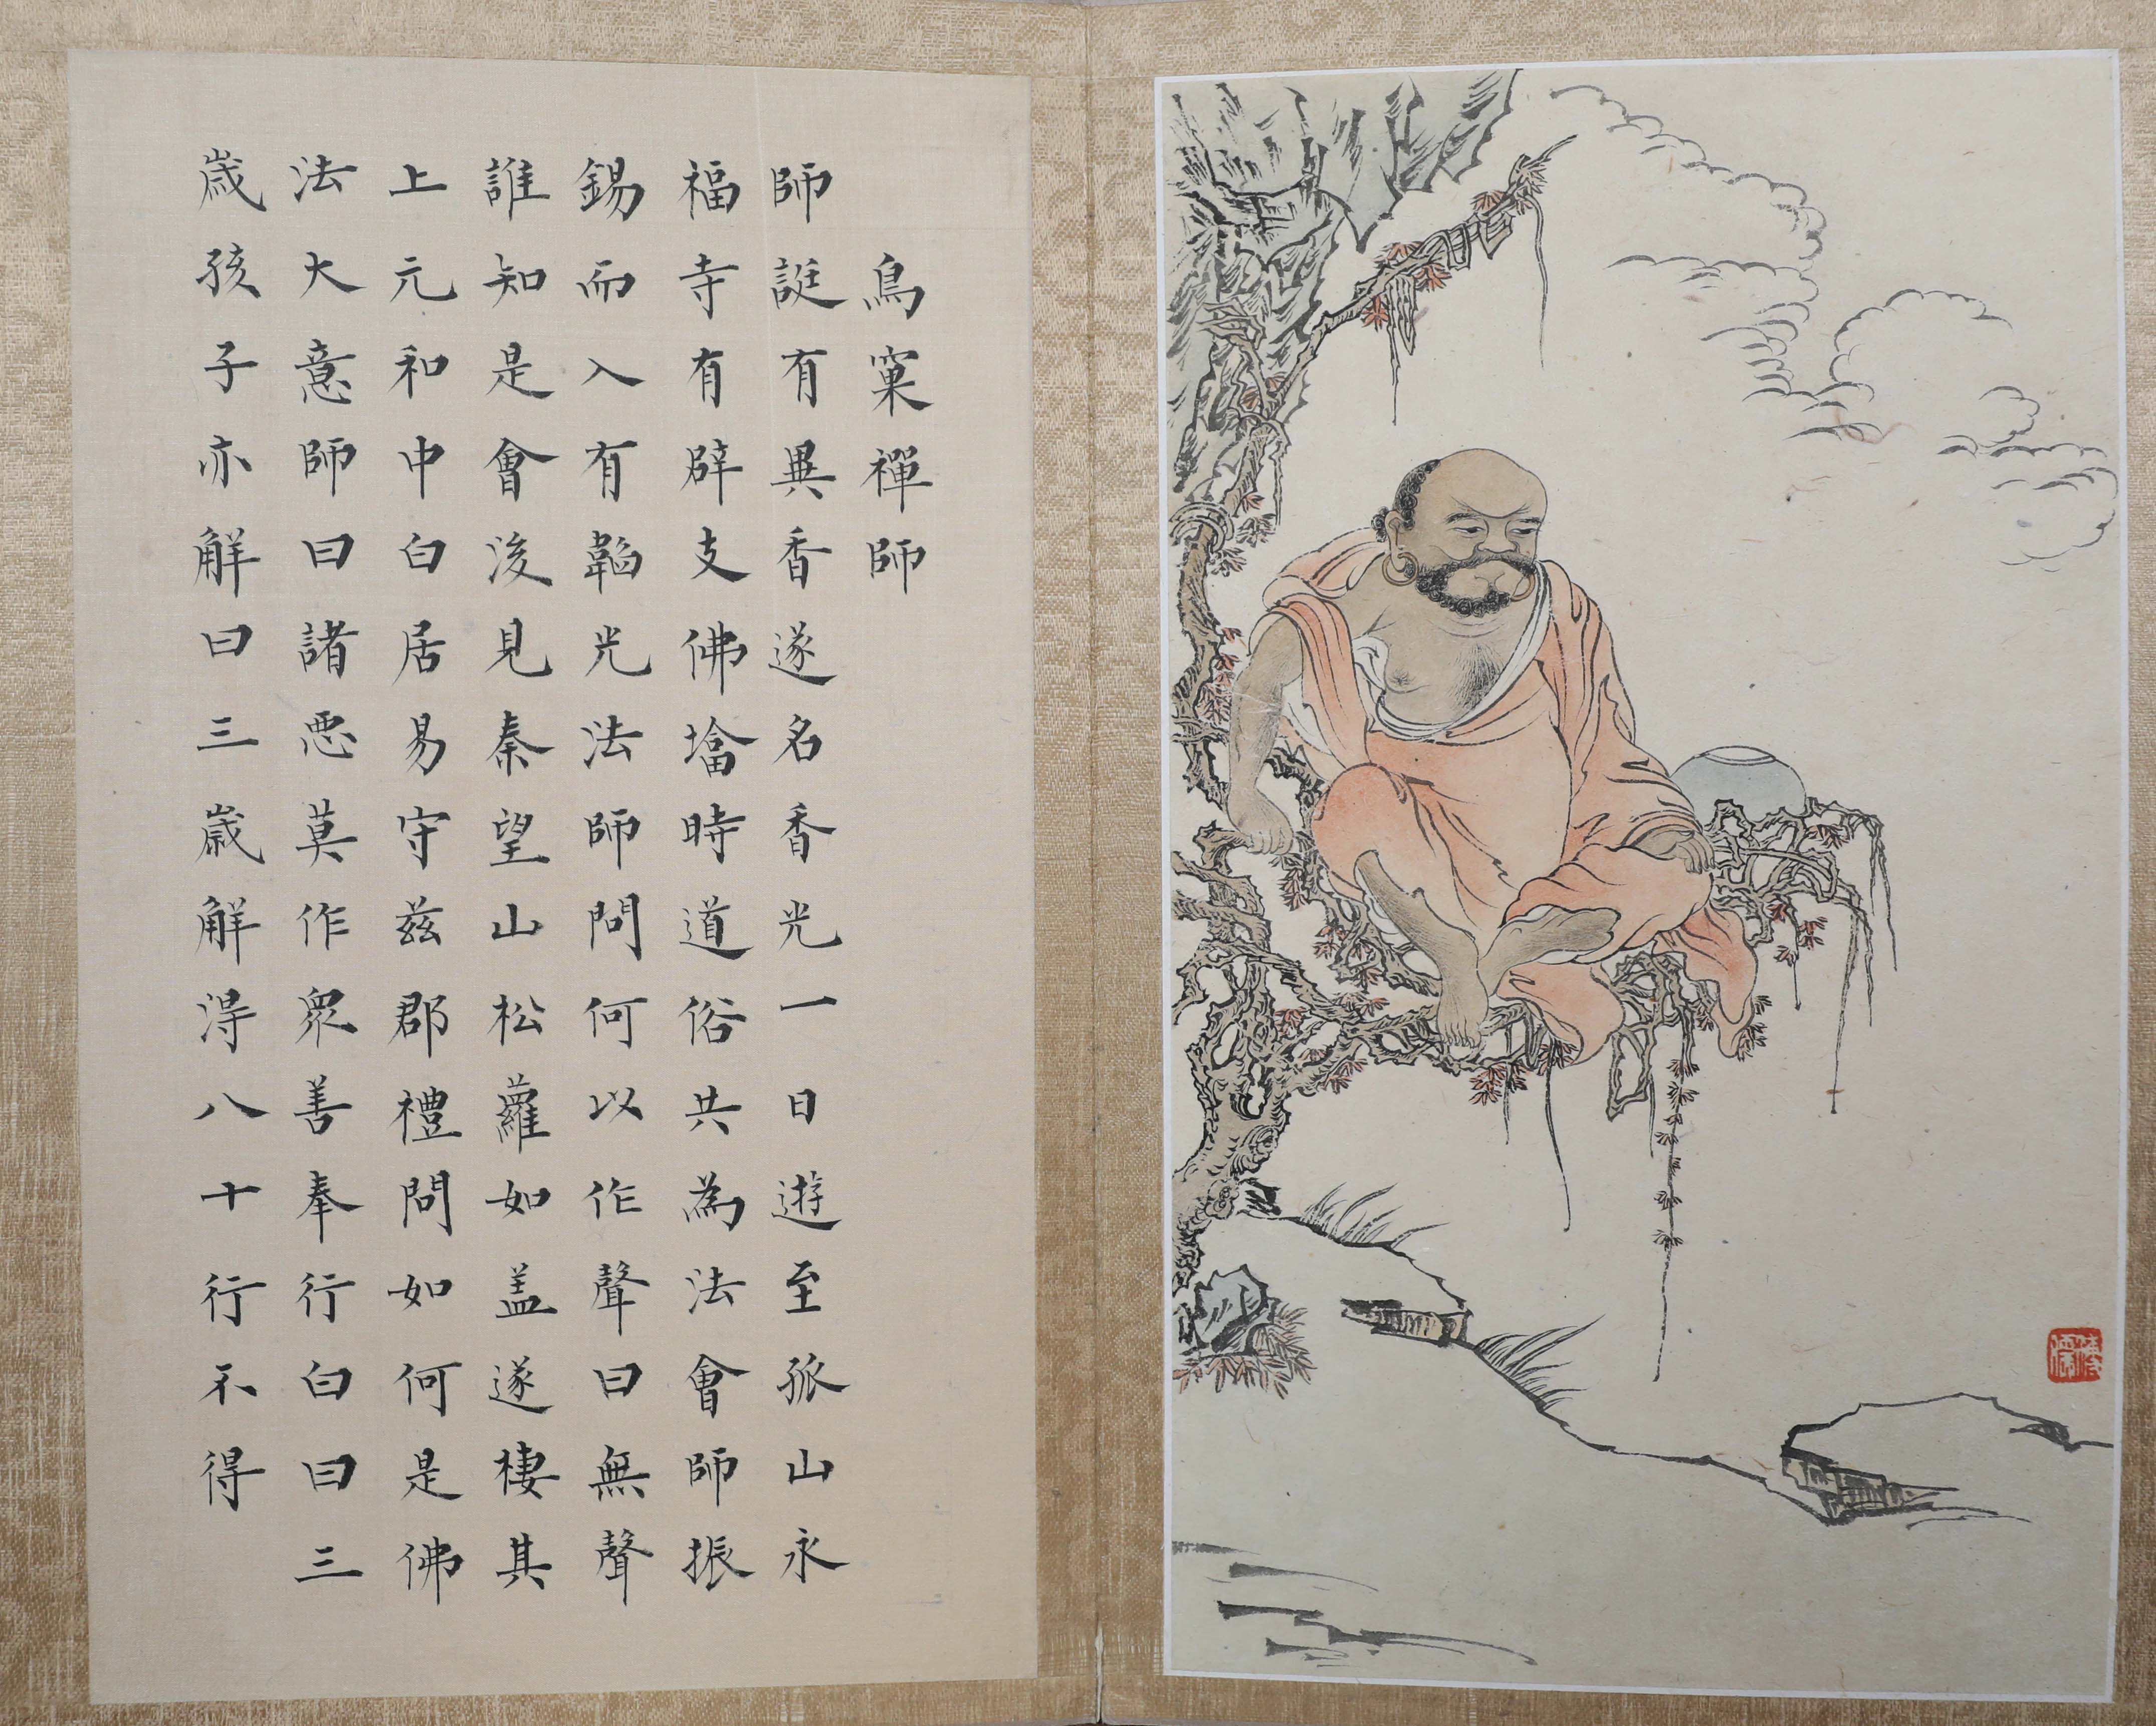 鳥窠禪師
師誕有異香遂名香光一日遊至孤山永
福寺有辟支佛墖時道俗共為法會師振
錫而入有韜光法師問何以作聲曰無聲
誰知是會後見秦望山松蘿如盖遂棲其
上元和中白居易守茲郡禮問如何是佛
法大意師曰諸悪莫作衆善奉行白曰三
歲孩子亦解曰三歲解得八十行不得
溥儒